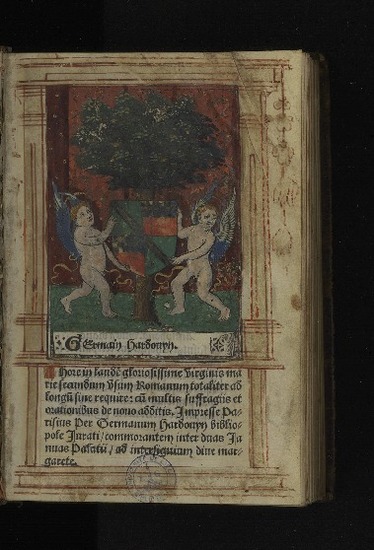 L
Germain Hardouyn.
Hore in laudē gloriosissime virginis ma
rie secundum vsum Romanum totaliter ad
longū sine require: cū multis suffragiis et
orationibus de nouo additis. Impresse Pa
risius Per Germanum Hardouyn biblio-
pole Iurati/commorantem inter duas Ia
nuas Palatii/ad intersignium diue mar-
garete.